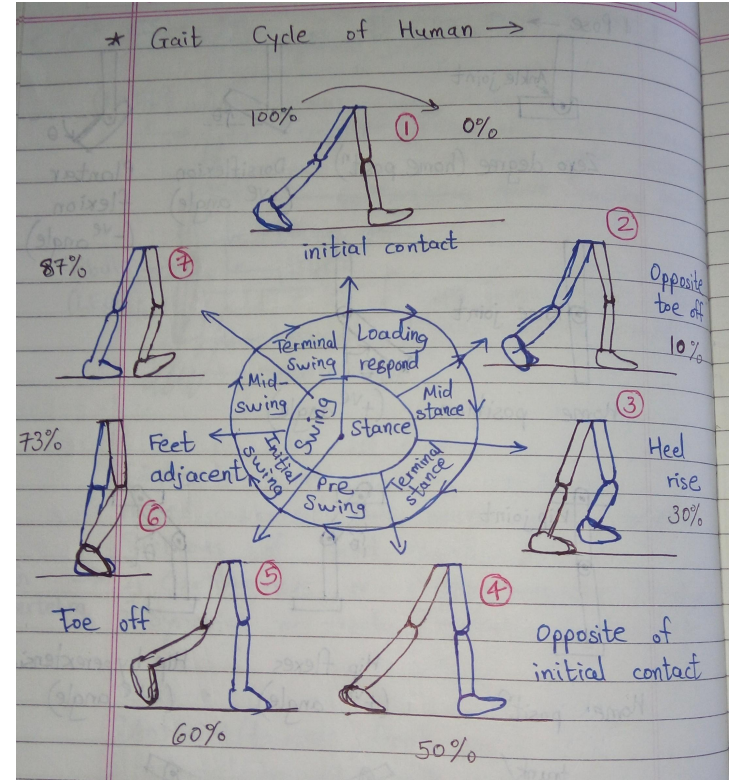 * Gait Cycle of Human →
100% ① 0%
initial contact
②
Opposite
toe off
10%
③
Heel
rise
30%
④
Opposite of
initial contact
50%
⑤
60%
Toe off
⑥
73%
Feet
adjacent
⑦
87%
Loading
respond
Mid
stance
Terminal
stance
Pre
Swing
Initial
swing
Mid-
swing
Terminal
swing
Swing
Stance